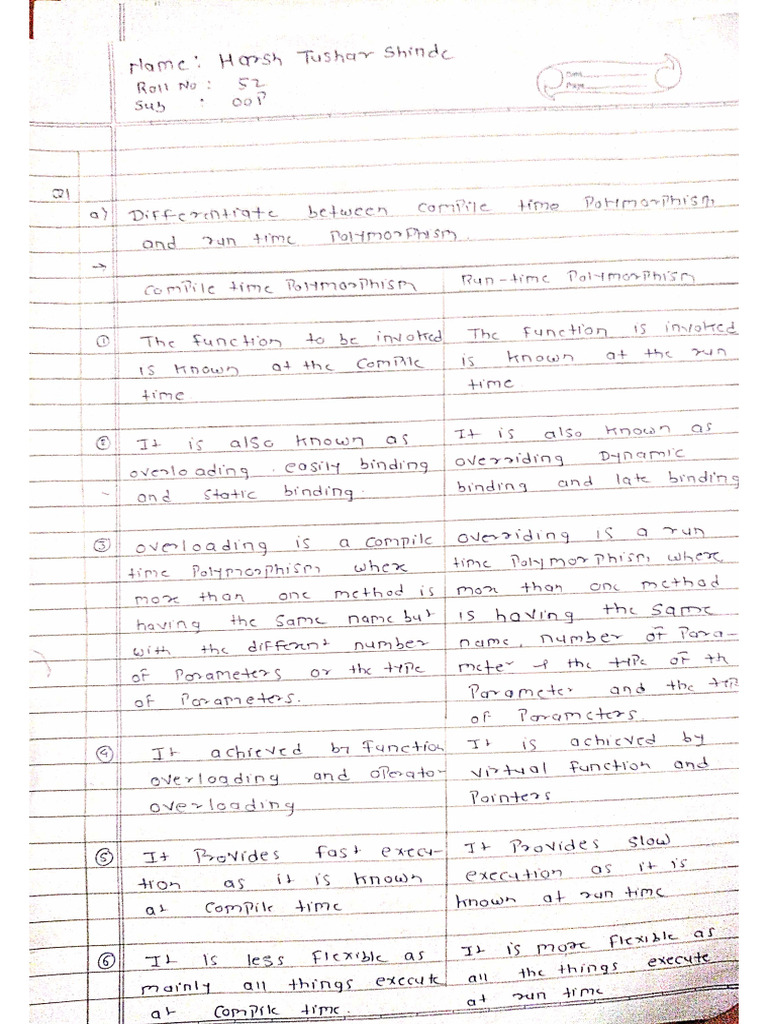 Name: Harsh Tushar Shinde
Roll No : 52
Sub : OOP
Q1
a) Differentiate between compile time polymorphism
and run time polymorphism.
→
Compile time polymorphism Run-time polymorphism
① The function to be invoked The function is invoked
is known at the compile is known at the run
time time
② It is also known as It is also known as
overloading. easily binding overriding Dynamic
and static binding. binding and late binding
③ overloading is a compile overriding is a run
time polymorphism where time polymorphism where
more than one method is more than one method
having the same name but is having the same
with the different number name, number of para-
of parameters or the type meter & the type of th
of parameters. parameter and the typ
of parameters
④ It achieved by function It is achieved by
overloading and operator virtual function and
overloading pointers
⑤ It provides fast execu- It provides slow
tion as it is known execution as it is
at compile time known at run time
⑥ It is less flexible as It is more flexible as
mainly all things execute all the things execute
at compile time. at run time